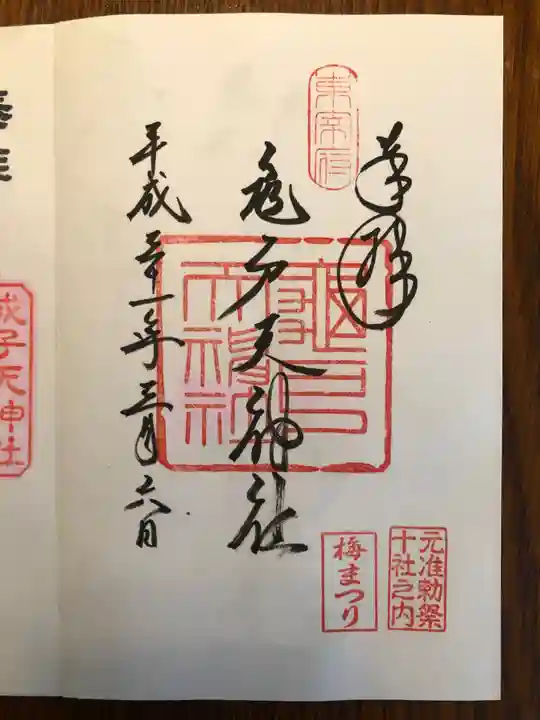 奉拝
東宰府
亀戸天神社
亀戸天神社
平成三十一年三月六日
元准勅祭
十社之内
梅まつり
奉拝
成子天神社